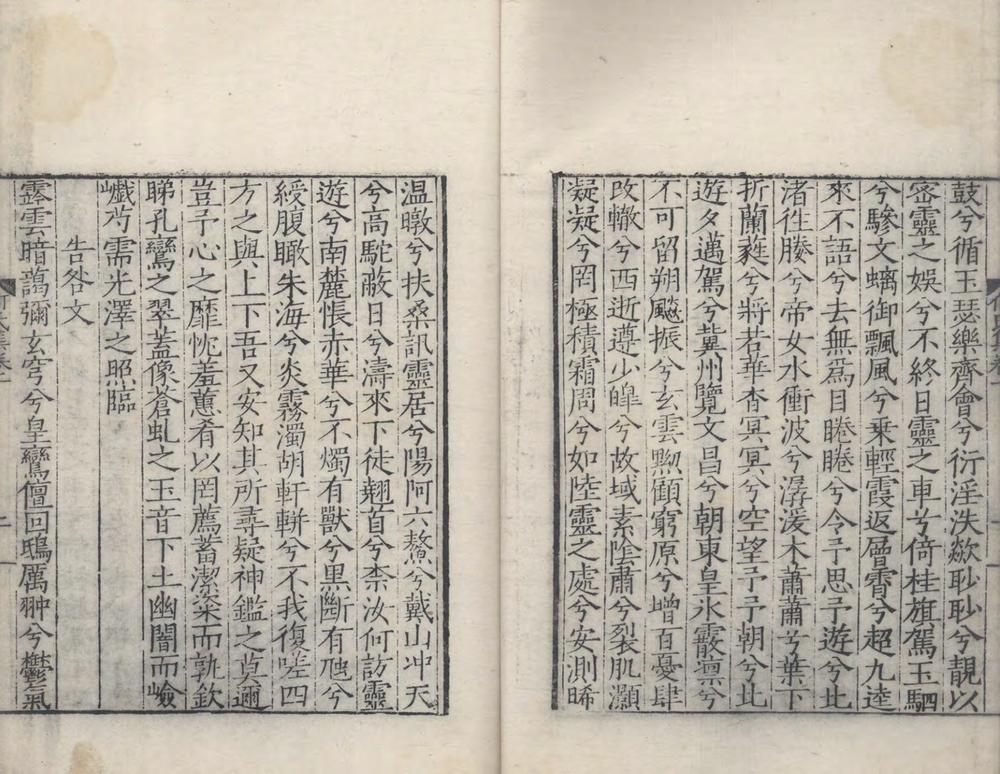 鼓兮循玉瑟樂齊會兮衍淫泆歘眇眇兮靚以
宻靈之娛兮不終日靈之車兮倚桂旗駕玉駟
兮驂文螭御飄風兮乗輕霞返層霄兮超九逵
來不語兮去無爲目睠睠兮令予思予遊兮北
渚徃媵兮帝女水衝波兮潺湲木蕭蕭兮葉下
折蘭蕤兮將若華杳冥冥兮空望予予朝兮北
遊夕邁駕兮冀州覽文昌兮朝東皇氷霰凛兮
不可留朔飈振兮玄雲黝頋窮原兮增百憂肆
攺轍兮西逝遵少皥兮故域素陰肅兮裂肌灝
疑疑兮罔極積霜周兮如陸靈之處兮安測晞
温暾兮扶桑訊靈居兮陽阿六鰲兮戴山冲天
兮高駝敝日兮濤來下徒翹首兮柰汝何訪靈
遊兮南麓悵赤華兮不燭有獸兮黒斷有虺兮
綬腹瞰朱海兮炎霧濁胡軒輧兮不我復嗟四
方之與上下吾又安知其所尋疑神鑑之莫邇
豈予心之靡忱羞蕙肴以罔薦蓄潔粢而孰歆
睇孔鸞之翠蓋像蒼虬之玉音下土幽闇而嶮
巇芍需光澤之照臨
告咎文
霿雲暗藹彌玄穹兮皇鸞儃回鴟厲翀兮鬱氣